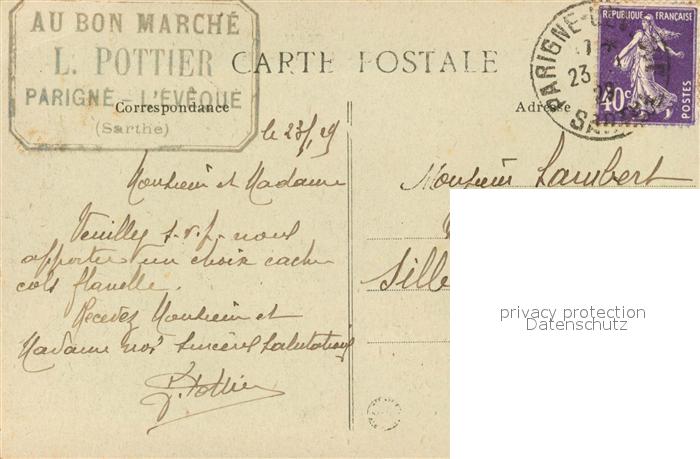 AU BON MARCHÉ
L. POTTIER
PARIGNÉ-L'ÉVÊQUE
(Sarthe)
CARTE POSTALE
Correspondance
Adresse
RÉPUBLIQUE FRANÇAISE
40c
POSTES
PARIGNE-L'EV
23
29
SARTHE
le 23/ 29
Monsieur et Madame
Veuillez s.v.p. nous
apporter un choix cache
cols flanelle.
Recevez Monsieur et
Madame nos sincères salutations
Pottier
Monsieur Lambert
Sillé
privacy protection
Datenschutz